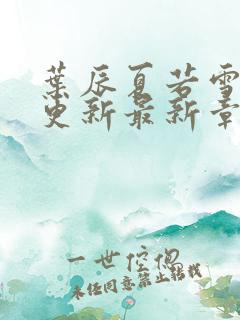 葉辰夏若雪
更新最新章
一世傥偲
未经同意禁止转载